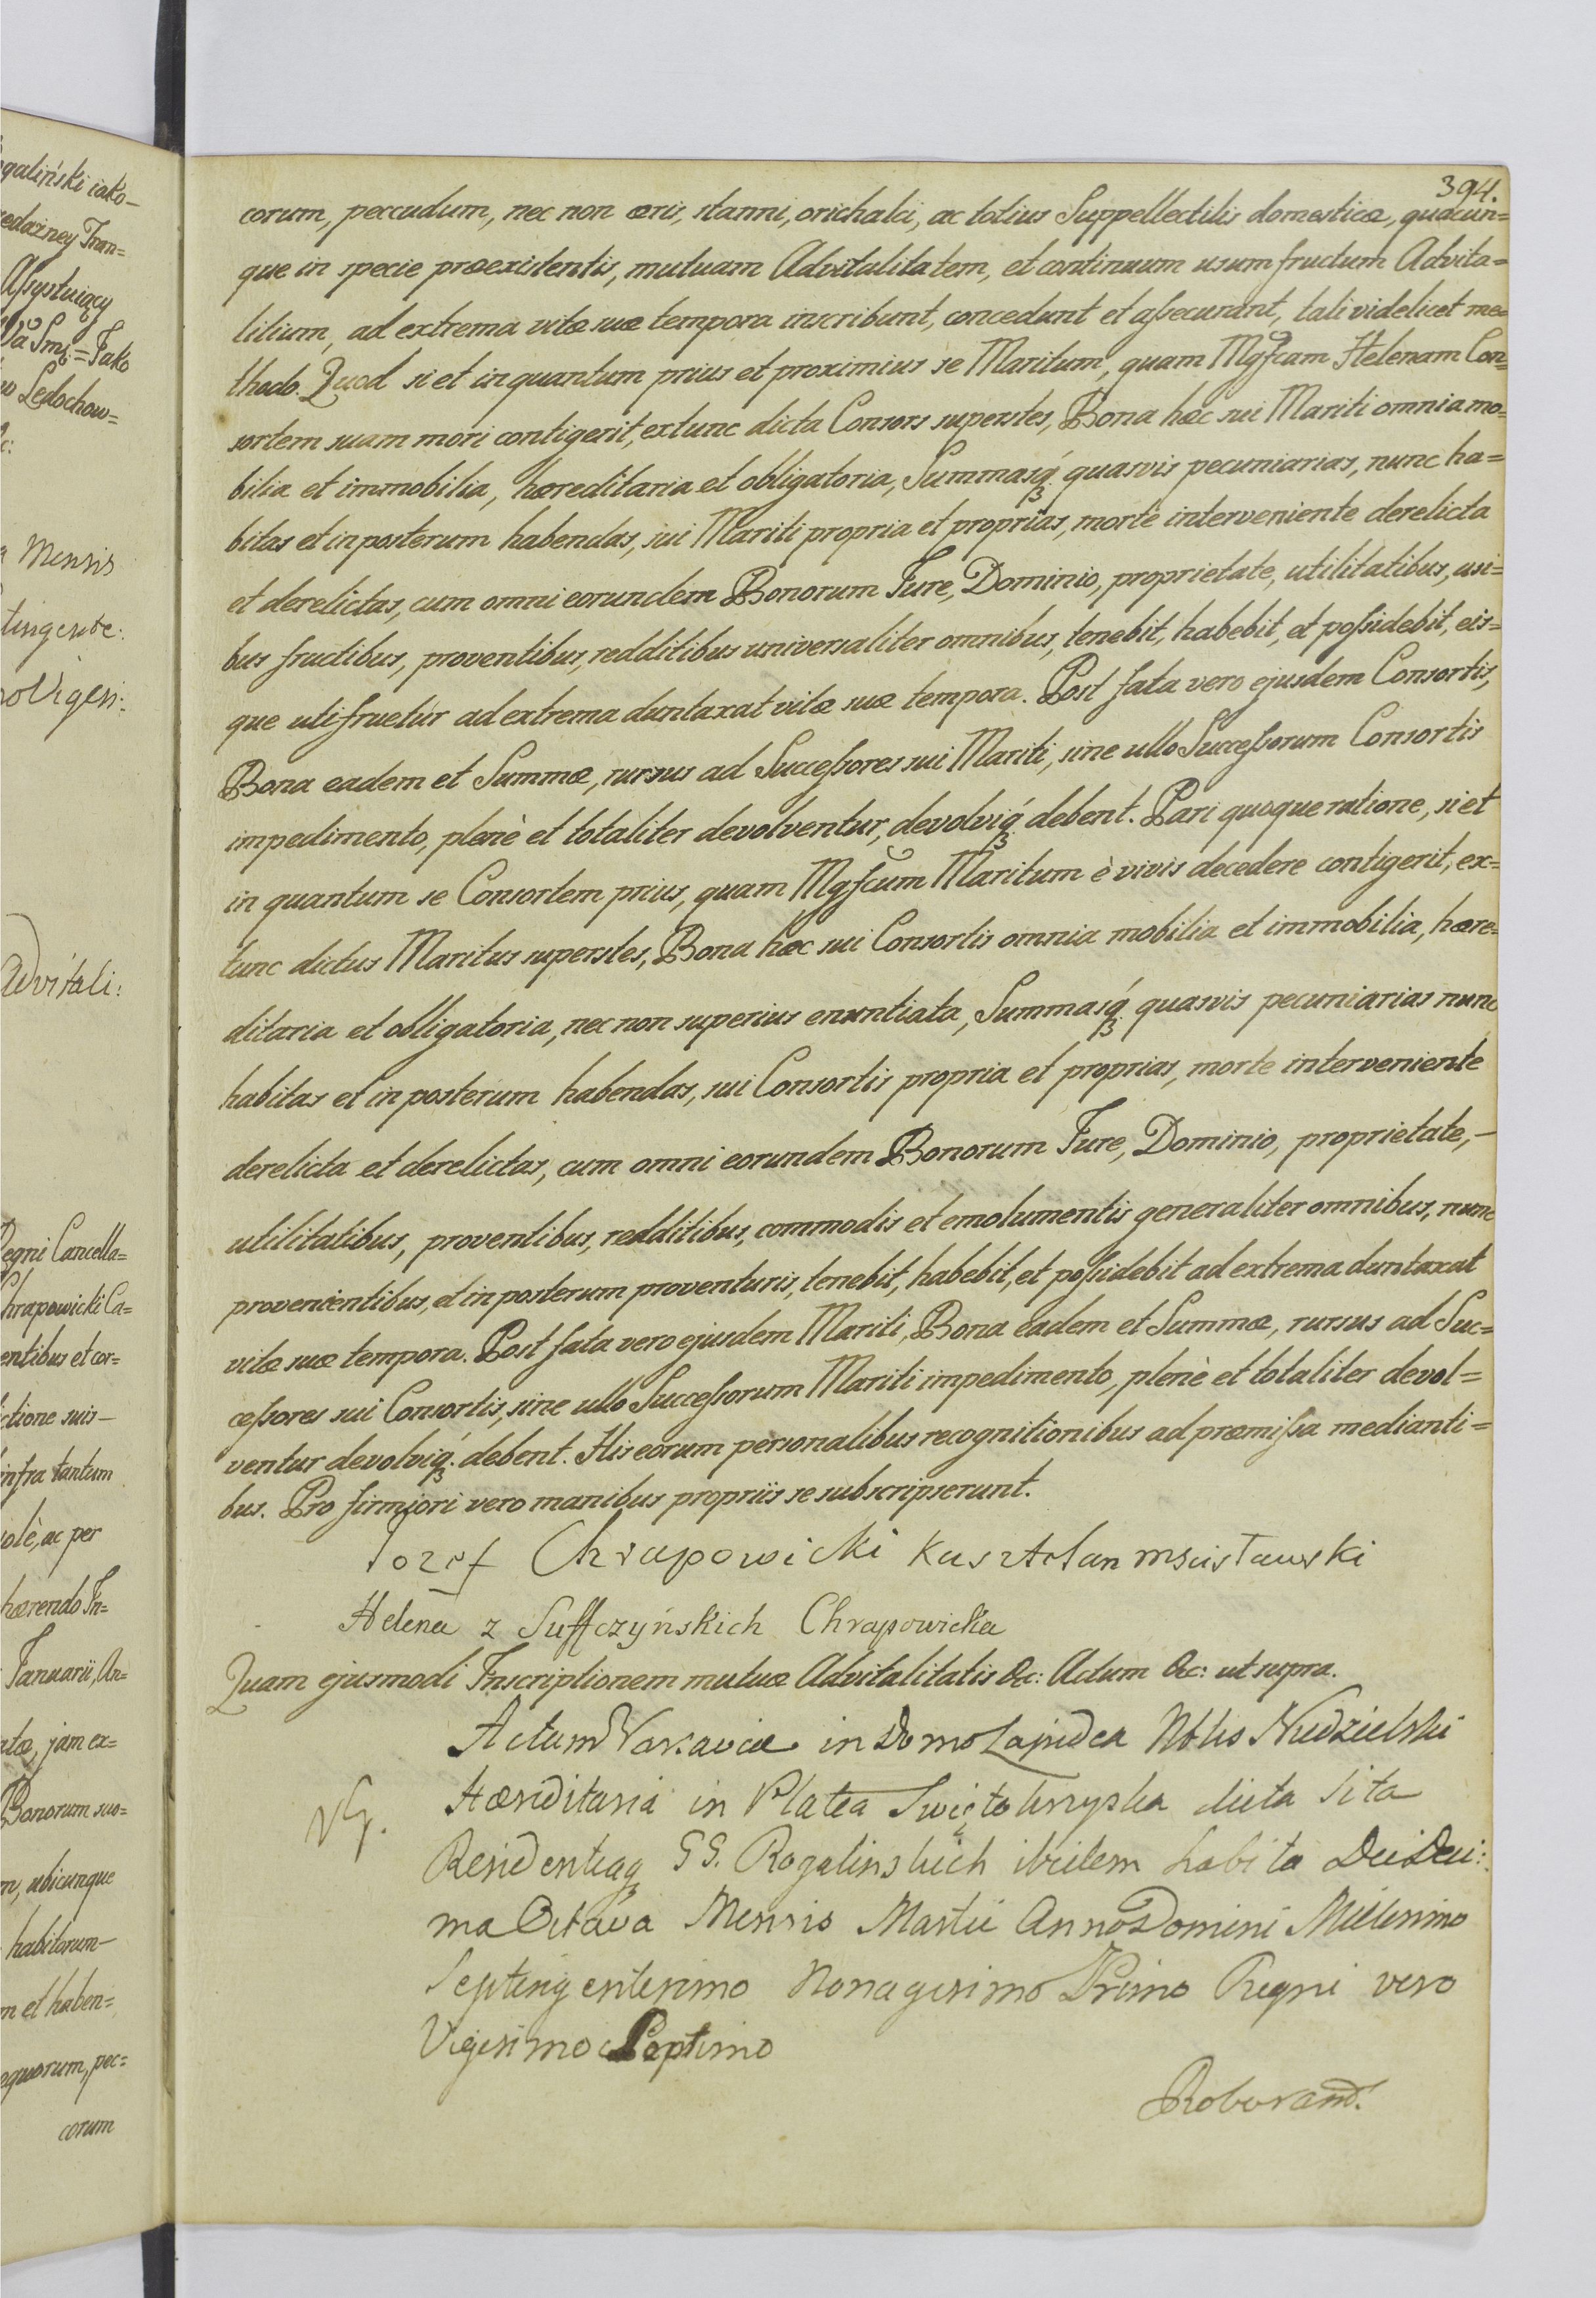 galiński iako-
edażney Tran=
Assystuiący
Wa Smi=Jako
w Ledochow=
c:
Mensis
tingente:
o Viges:
Advitali:
Regni Cancella=
Chrapowicki Ca=
entibus et cor=
ctione suis-
infra tantum
olè, ac per
hærendo In=
Januarii, An=
atæ, jam ex=
Bonorum suo=
m, ubicunque
habitorum-
m et haben=
equorum, pec=
corum
394.
corum, peccudum, nec non æris, stanni, orichalci, ac totius Suppellectilis domesticæ, quacun=
que in specie præexistentis, mutuam Advitalitatem, et continuum usumfructum Advita=
litium, ad extrema vitæ suæ tempora inscribunt, concedunt et assecurant, tali videlicet me=
thodo. Quod si et in quantum prius et proximius se Maritum, quam Mgfcam Helenam Con=
sortem suam mori contigerit, extunc dicta Consors superstes, Bona hæc sui Mariti omnia mo=
bilia et immobilia, hæreditaria et obligatoria, Summasq́ꝫ quasvis pecuniarias, nunc ha=
bitas et in posterum habendas, sui Mariti propria et proprias, morte interveniente derelicta
et derelictas, cum omni eorundem Bonorum Jure, Dominio, proprietate, utilitatibus, usi=
bus fructibus, proventibus, redditibus universaliter omnibus, tenebit, habebit, et possidebit, eis=
que utifruetur ad extrema duntaxat vitæ suæ tempora. Post fata vero ejusdem Consortis,
Bona eadem et Summæ, rursus ad Successores sui Mariti, sine ullo Successorum Consortis
impedimento, plenè et totaliter devolventur, devolviq́ꝫ debent. Pari quoque ratione, si et
in quantum se Consortem prius, quam Mgfcum Maritum è vivis decedere contigerit, ex=
tunc dictus Maritus superstes, Bona hæc sui Consortis omnia mobilia et immobilia, hære=
ditaria et obligatoria, nec non superius enuntiata, Summasq́ꝫ quasvis pecuniarias nunc
habitas et in posterum habendas, sui Consortis propria et proprias, morte interveniente
derelicta et derelictas, cum omni eorundem Bonorum Jure, Dominio, proprietate,-
utilitatibus, proventibus, redditibus, commodis et emolumentis generaliter omnibus, nunc
provenientibus, et in posterum proventuris, tenebit, habebit, et possidebit ad extrema duntaxat
vitæ suæ tempora. Post fata vero ejusdem Mariti, Bona eadem et Summæ, rursus ad Suc=
cessores sui Consortis, sine ullo Successorum Mariti impedimento, plenè et totaliter devol=
ventur devolviq́ꝫ. debent. His eorum personalibus recognitionibus ad præmissa medianti=
bus. Pro firmiori vero manibus propriis se subscripserunt.
Jozef Chrapowicki Kasztelan mscisławski
Helena z Suffczyńskich Chrapowicka
Quam ejusmodi Inscriptionem mutuæ Advitalitatis &c: Actum &c: ut supra.
Actum Varsaviæ in Domo Lapidea Nblis Niedzielski
Hæreditaria in Platea Swiętokrzyska dicta sita
Residentiaqꝫ GG. Rogalinskich ibidem habita Die Deci:
ma Octava Mensis Martii Anno Domini Millesimo
Septingentesimo Nonagesimo Primo Regni vero
Vigesimo Septimo
Roborand.